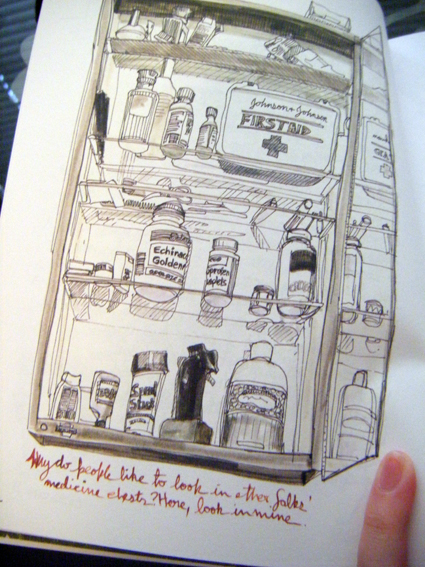 Johnson & Johnson
FIRST AID
Echinacea
Golden
Why do people like to look in other folks'
medicine chests? Here, look in mine.